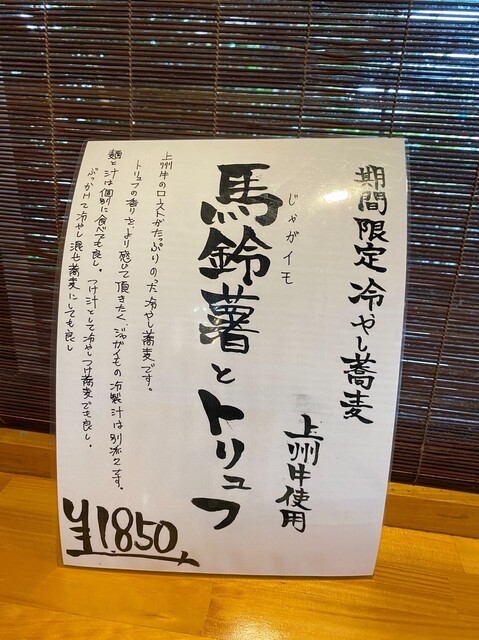 期間限定 冷やし蕎麦
上州牛使用
じゃがイモ
馬鈴薯とトリュフ
上州牛のローストがたっぷりのった冷やし蕎麦です。
トリュフの香りをより感じて頂きたく、ジャガイモの冷製汁は別添えです。
麺と汁は個別に食べても良し。つけ汁として冷やしつけ蕎麦でも良し。
ぶっかけて冷やし混ぜ蕎麦にしても良し
¥1,850